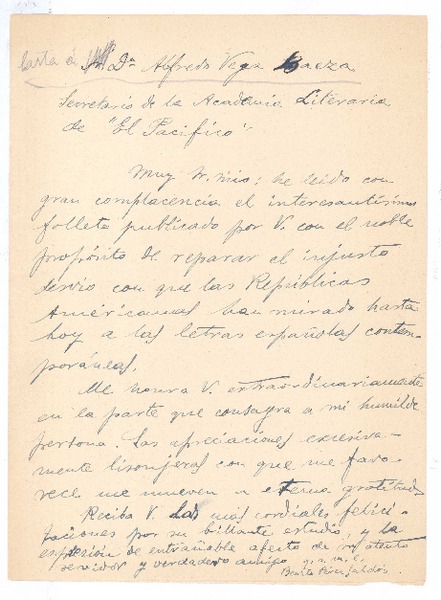 Carta á
Sr. Dn Alfredo Vega Baeza
Secretario de la Academia Literaria
de "El Pacífico"
Muy Sr. mio: he leido con
gran complacencia el interesantísimo
folleto publicado por V. con el noble
propósito de reparar el injusto
desvio con que las Repúblicas
Américanas han mirado hasta
hoy a las letras españolas contem-
poráneas.
Me honra V. extraordinariamente
en la parte que consagra a mi humilde
persona. Las apreciaciones excesiva-
mente lisonjeras con que me favo-
rece me mueven a eterna gratitud.
Reciba V. las más cordiales felici-
taciones por su brillante estudio, y la
expresión de entrañable afecto de su atento
servidor y verdadero amigo q. s. m. e.
Benito Pérez Galdós